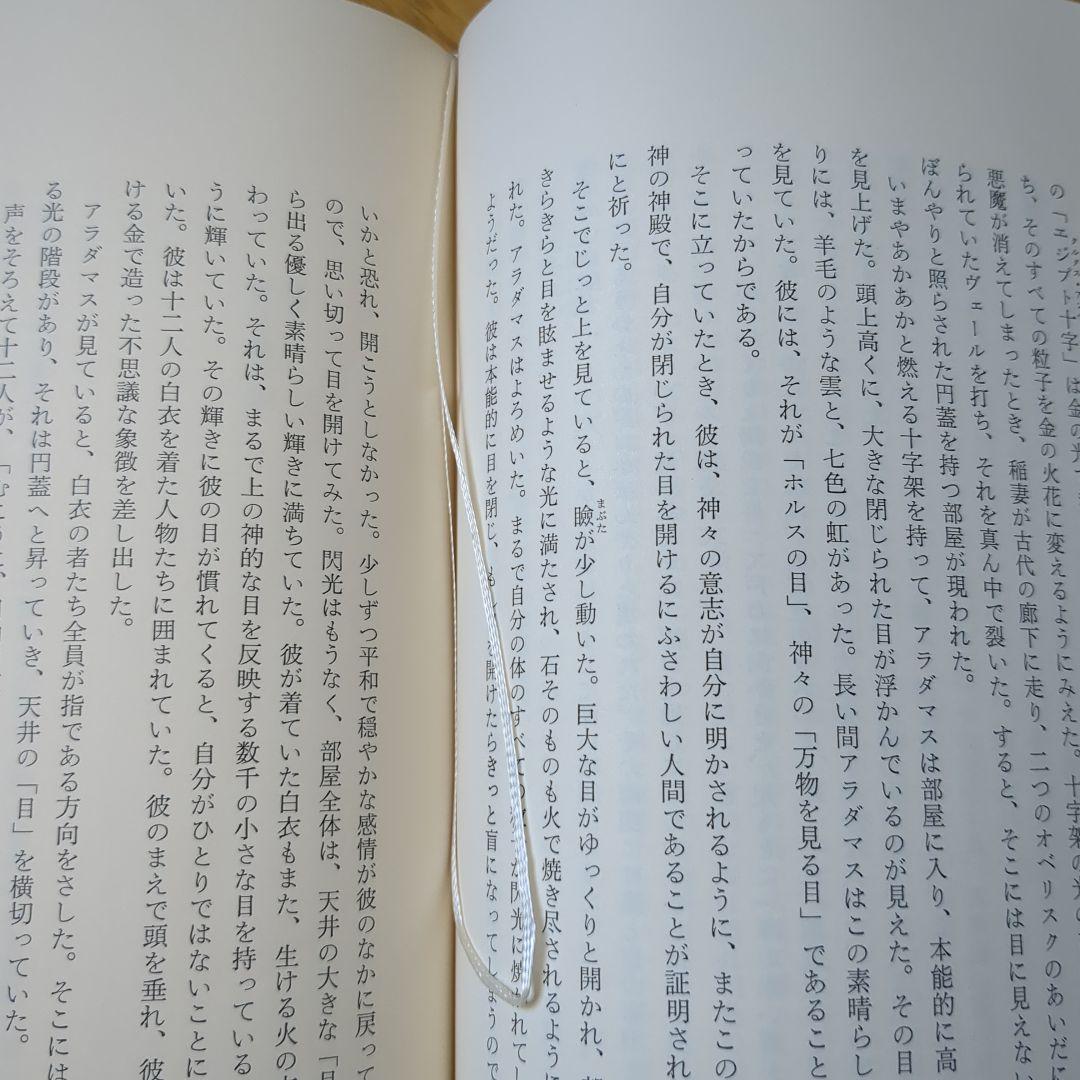 の「エジプト十字」は金の光
ち、そのすべての粒子を金の火花に変えるようにみえた。十字架の光の
悪魔が消えてしまったとき、稲妻が古代の廊下に走り、二つのオベリスクのあいだに
られていたヴェールを打ち、それを真ん中で裂いた。すると、そこには目に見えない
ぼんやりと照らされた円蓋を持つ部屋が現われた。
いまやあかあかと燃える十字架を持って、アラダマスは部屋に入り、本能的に高
を見上げた。頭上高くに、大きな閉じられた目が浮かんでいるのが見えた。その目
りには、羊毛のような雲と、七色の虹があった。長い間アラダマスはこの素晴らし
を見ていた。彼には、それが「ホルスの目」、神々の「万物を見る目」であること
っていたからである。
そこに立っていたとき、彼は、神々の意志が自分に明かされるように、またこの
神の神殿で、自分が閉じられた目を開けるにふさわしい人間であることが証明され
にと祈った。
そこでじっと上を見ていると、瞼が少し動いた。巨大な目がゆっくりと開かれ、
まぶた
きらきらと目を眩ませるような光に満たされ、石そのものも火で焼き尽されるように
れた。アラダマスはよろめいた。まるで自分の体のすべての 閃光に焼 れてし
ようだった。彼は本能的に目を閉じ、も を開けたらきっと盲になってしまうので
いかと恐れ、開こうとしなかった。少しずつ平和で穏やかな感情が彼のなかに戻って
ので、思い切って目を開けてみた。閃光はもうなく、部屋全体は、天井の大きな「目
ら出る優しく素晴らしい輝きに満ちていた。彼が着ていた白衣もまた、生ける火の
わっていた。それは、まるで上の神的な目を反映する数千の小さな目を持っている
うに輝いていた。その輝きに彼の目が慣れてくると、自分がひとりではないことに
いた。彼は十二人の白衣を着た人物たちに囲まれていた。彼のまえで頭を垂れ、彼
ける金で造った不思議な象徴を差し出した。
アラダマスが見ていると、白衣の者たち全員が指である方向をさした。そこには
る光の階段があり、それは円蓋へと昇っていき、天井の「目」を横切っていた。
声をそろえて十二人が、